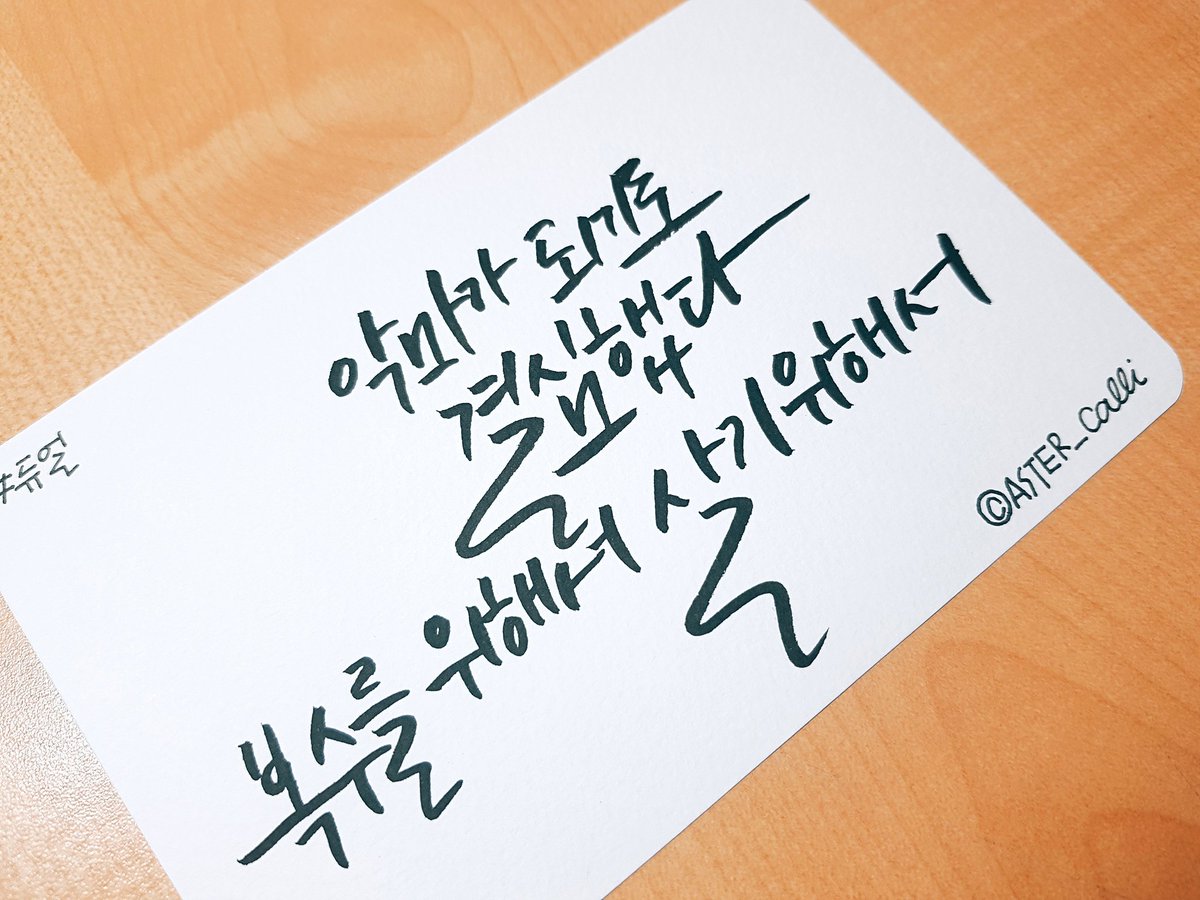 악마가 되기로
결심했다
복수를 위해서 살기위해서
#듀얼
©ASTER_Calli